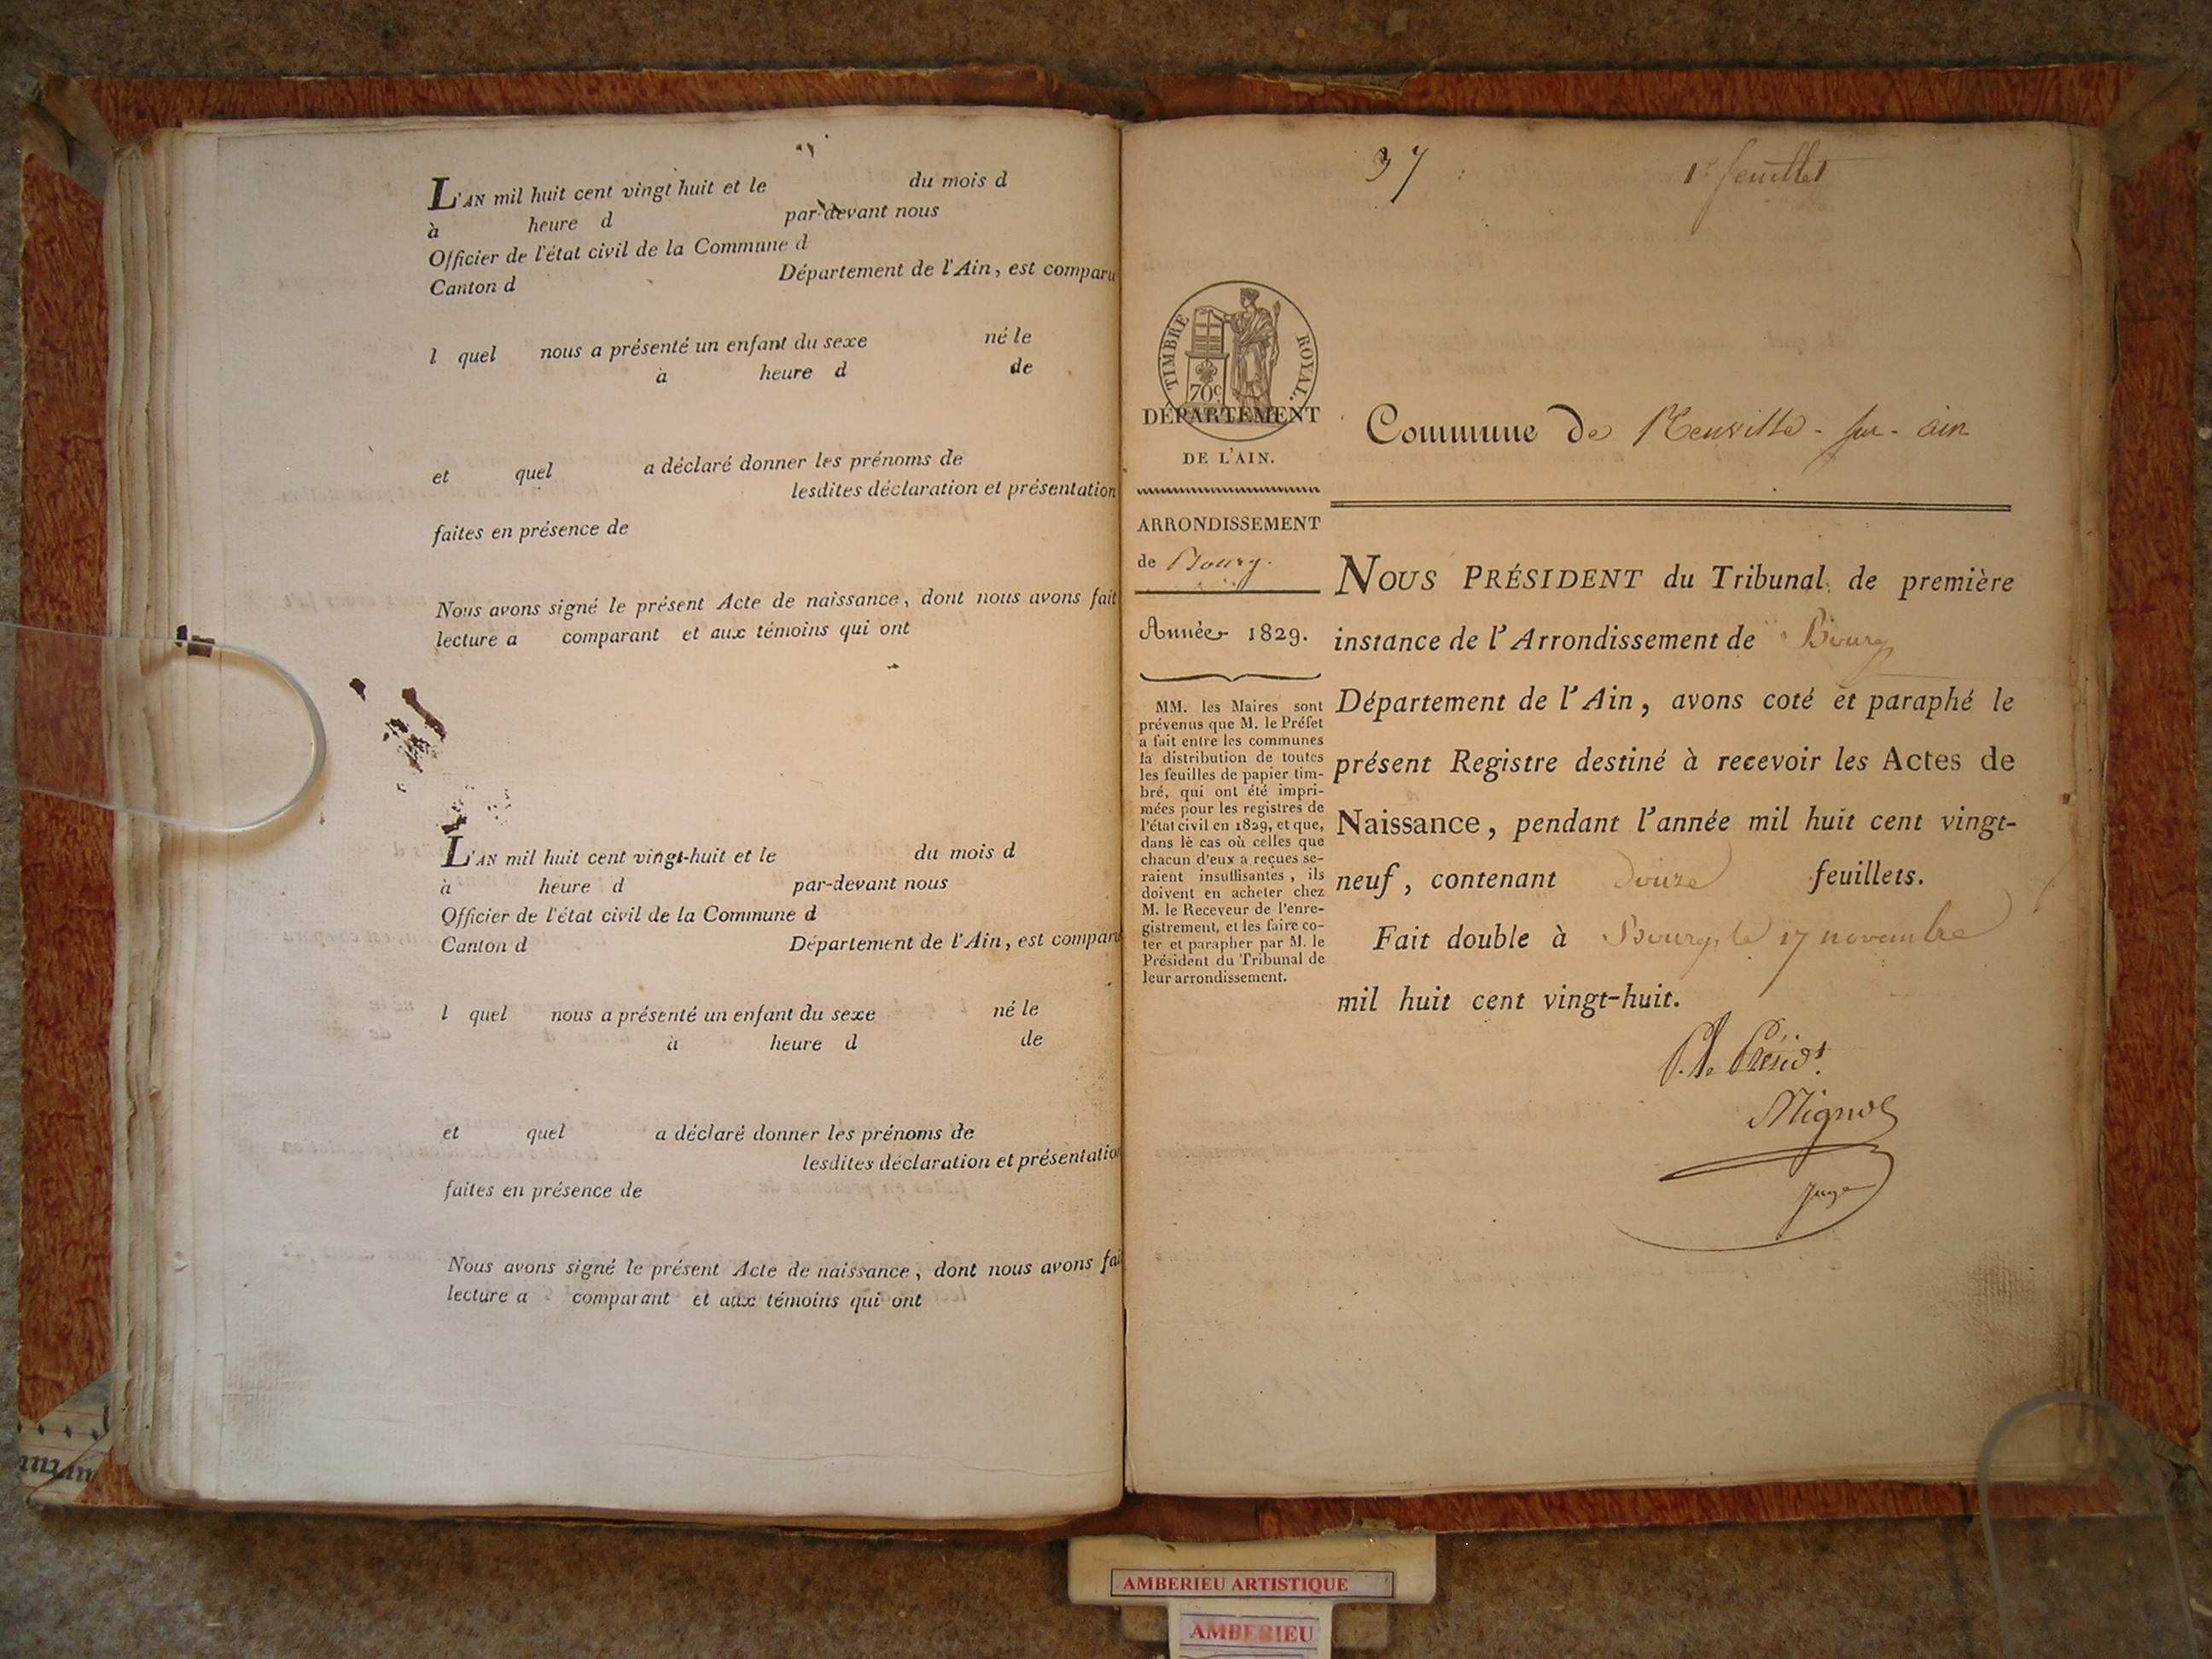 L'AN mil huit cent vingt huit et le du mois d
à heure d par-devant nous
Officier de l'état civil de la Commune d
Canton d Département de l'Ain, est comparu
l quel nous a présenté un enfant du sexe né le
à heure d de
et quel a déclaré donner les prénoms de
lesdites déclaration et présentation
faites en présence de
Nous avons signé le présent Acte de naissance, dont nous avons fait
lecture a comparant et aux témoins qui ont
L'AN mil huit cent vingt-huit et le du mois d
à heure d par-devant nous
Officier de l'état civil de la Commune d
Canton d Département de l'Ain, est comparu
l quel nous a présenté un enfant du sexe né le
à heure d de
et quel a déclaré donner les prénoms de
lesdites déclaration et présentation
faites en présence de
Nous avons signé le présent Acte de naissance, dont nous avons fai
lecture a comparant et aux témoins qui ont
37 1er feuillet
TIMBRE ROYAL.
70c
DÉPARTEMENT
DE L'AIN.
ARRONDISSEMENT
de Bourg.
Année 1829.
MM. les Maires sont
prévenus que M. le Préfet
a fait entre les communes
la distribution de toutes
les feuilles de papier tim-
bré, qui ont été impri-
mées pour les registres de
l'état civil en 1829, et que,
dans le cas où celles que
chacun d'eux a reçues se-
raient insuffisantes, ils
doivent en acheter chez
M. le Receveur de l'enre-
gistrement, et les faire co-
ter et parapher par M. le
Président du Tribunal de
leur arrondissement.
Commune de Neuville-sur-ain
NOUS PRÉSIDENT du Tribunal de première
instance de l'Arrondissement de Bourg
Département de l'Ain, avons coté et paraphé le
présent Registre destiné à recevoir les Actes de
Naissance, pendant l'année mil huit cent vingt-
neuf, contenant douze feuillets.
Fait double à Bourg, le 17 novembre
mil huit cent vingt-huit.
P. le Présidt.
Mignot
Juge
AMBERIEU ARTISTIQUE
AMBERIEU